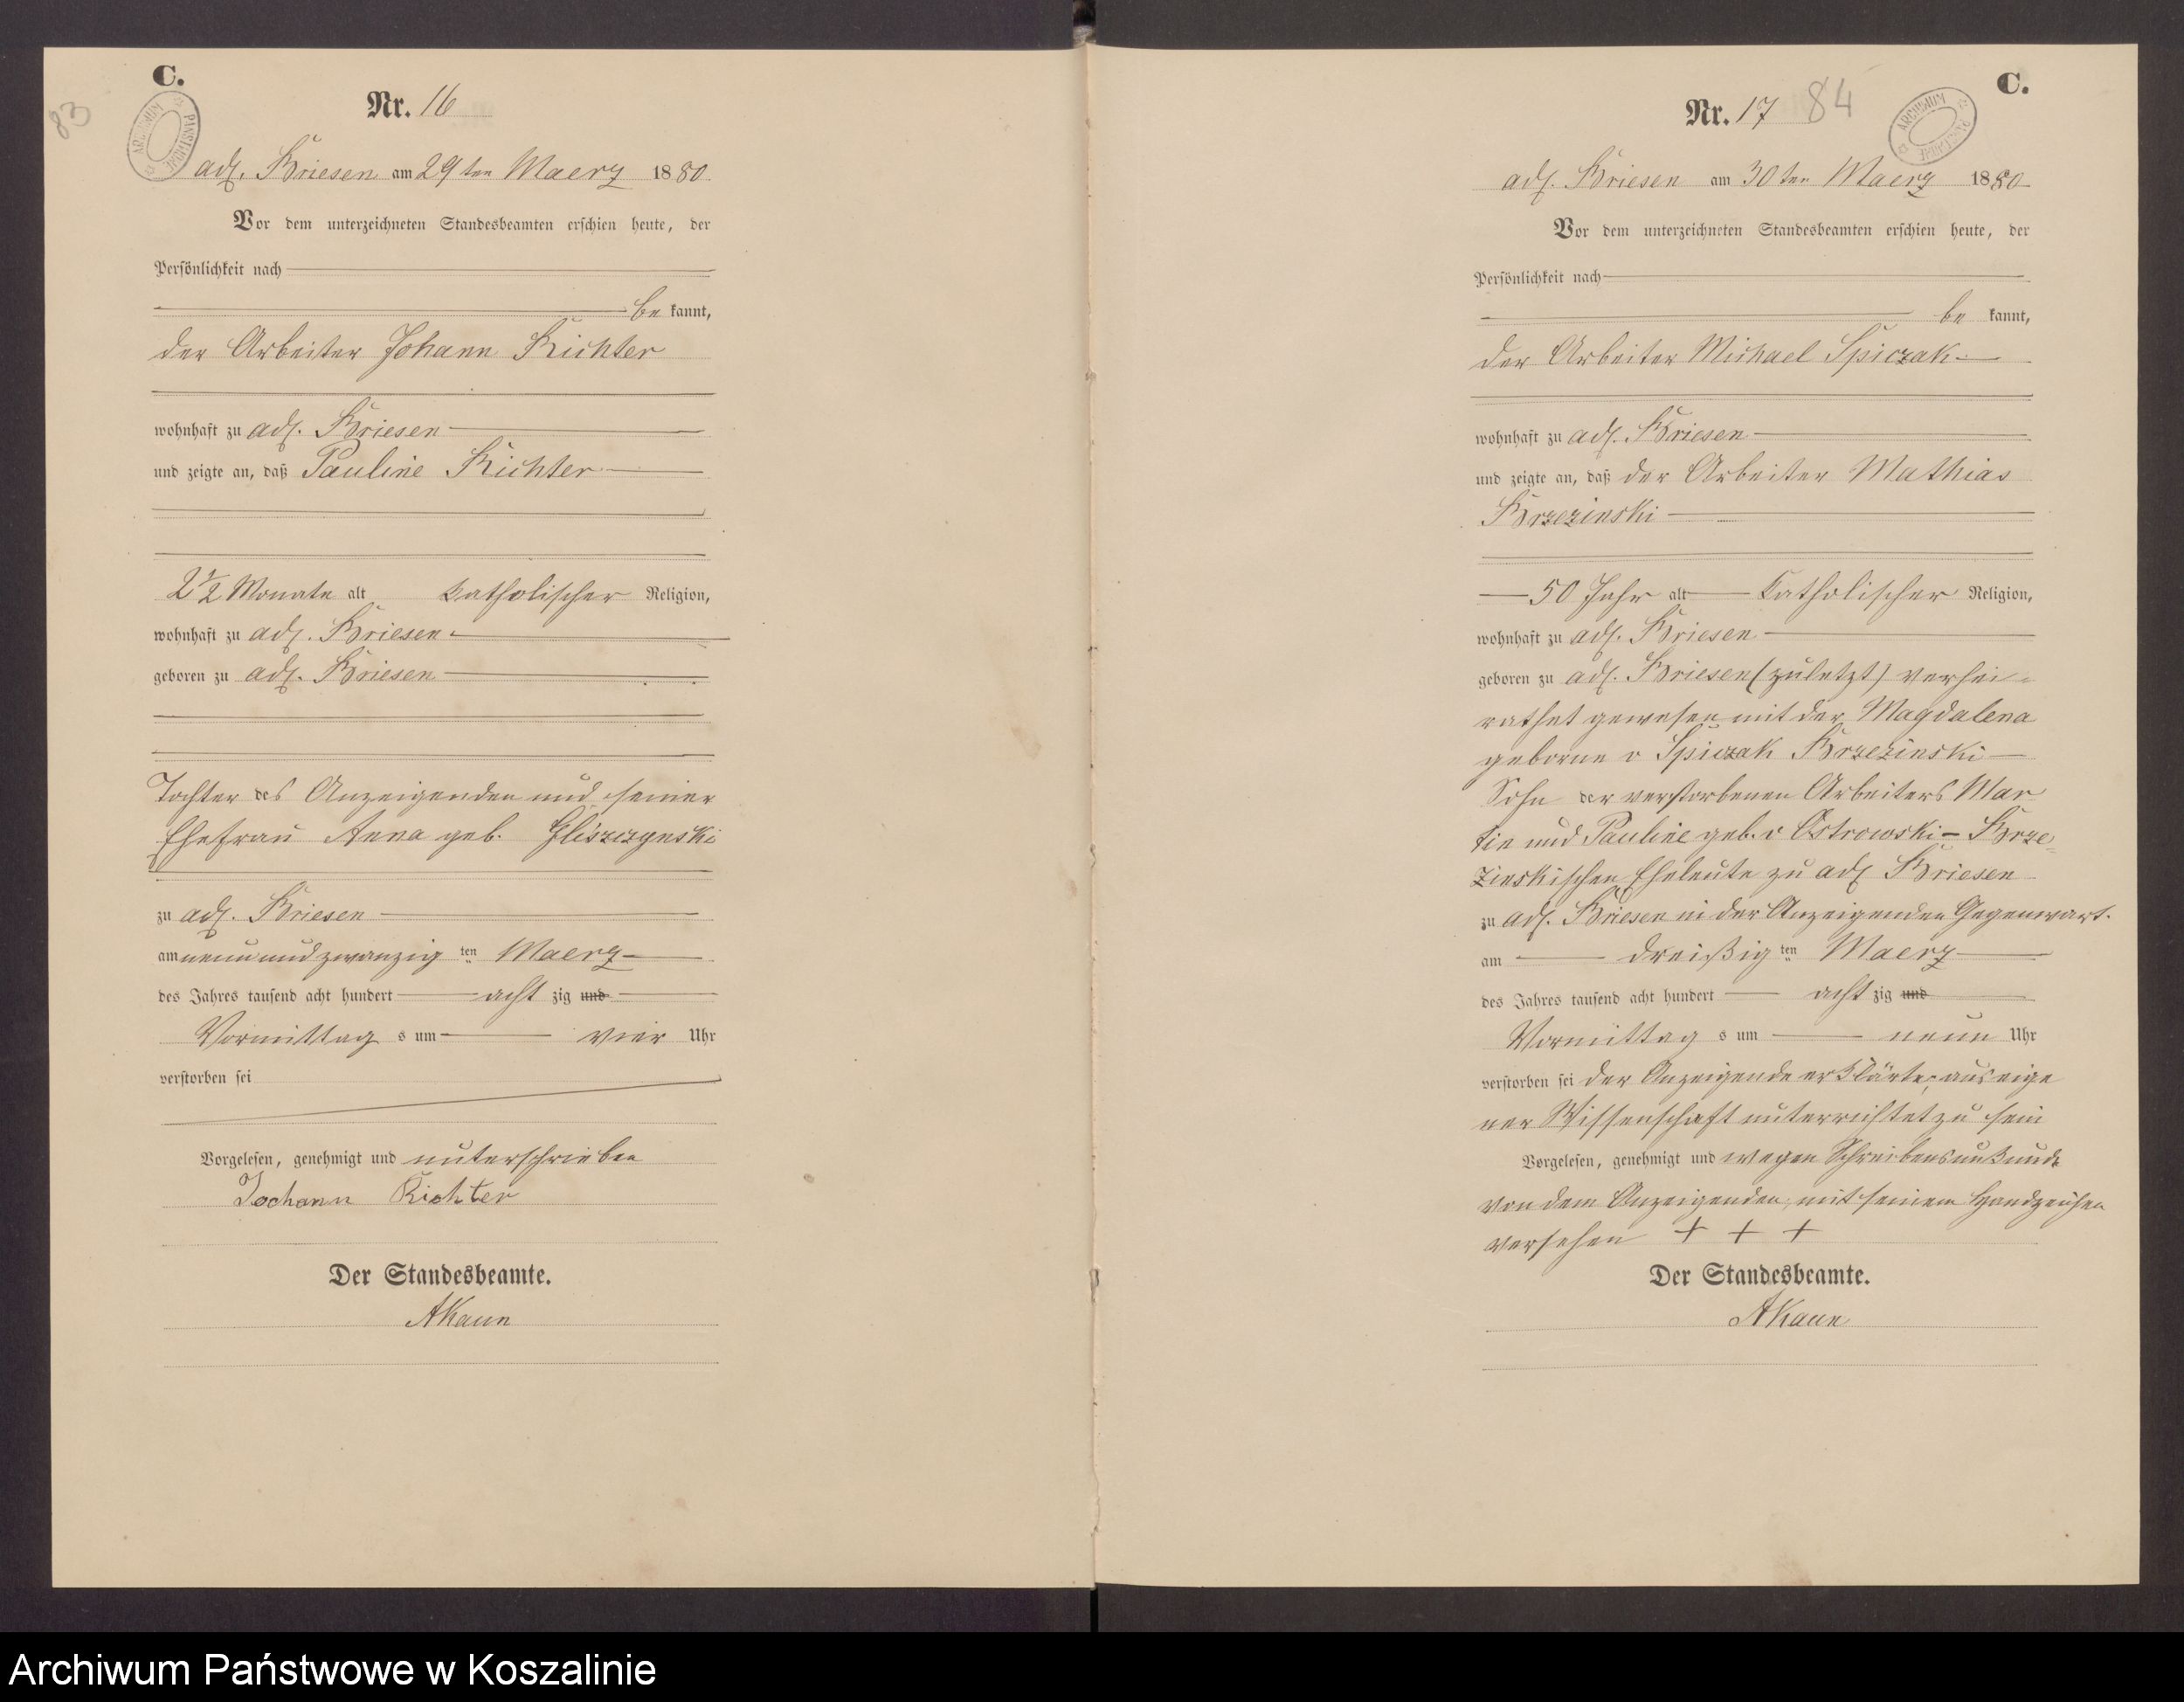 C.
83
Nr. 16
ARCHIWUM PAŃSTWOWE
adl. Briesen am 29ten Maerz 1880
Vor dem unterzeichneten Standesbeamten erschien heute, der
Persönlichkeit nach
be kannt,
der Arbeiter Johann Richter
wohnhaft zu adl. Briesen
und zeigte an, daß Pauline Richter
2 1/2 Monate alt katholischer Religion,
wohnhaft zu adl. Briesen
geboren zu adl. Briesen
Tochter des Anzeigenden und seiner
Ehefrau Anna geb. Gliszczynski
zu adl. Briesen
am neunundzwanzig ten Maerz
des Jahres tausend acht hundert acht zig und
Vormittag s um vier Uhr
verstorben sei
Vorgelesen, genehmigt und unterschrieben
Jochann Richter
Der Standesbeamte.
AKaun
C.
Nr. 17 84
ARCHIWUM PAŃSTWOWE
adl. Briesen am 30ten Maerz 1880
Vor dem unterzeichneten Standesbeamten erschien heute, der
Persönlichkeit nach
be kannt,
der Arbeiter Michael Spiczak
wohnhaft zu adl. Briesen
und zeigte an, daß der Arbeiter Mathias
Brzezinski
50 Jahr alt katholischer Religion,
wohnhaft zu adl. Briesen
geboren zu adl. Briesen (zuletzt) verhei-
rathet gewesen mit der Magdalena
geborne v Spiczak Brzezinski
Sohn der verstorbenen Arbeiters Mar
tin und Pauline geb. v Ostrowski - Brze-
zinskischen Eheleute zu adl Briesen
zu adl. Briesen in der Anzeigenden Gegenwart.
am dreißig ten Maerz
des Jahres tausend acht hundert acht zig und
Vormittag s um neun Uhr
verstorben sei der Anzeigende erklärte, aus eige
ner Wissenschaft unterrichtet zu sein
Vorgelesen, genehmigt und wegen Schreibensunkunde
von dem Anzeigenden, mit seinem Handzeichen
versehen + + +
Der Standesbeamte.
AKaun
Archiwum Państwowe w Koszalinie